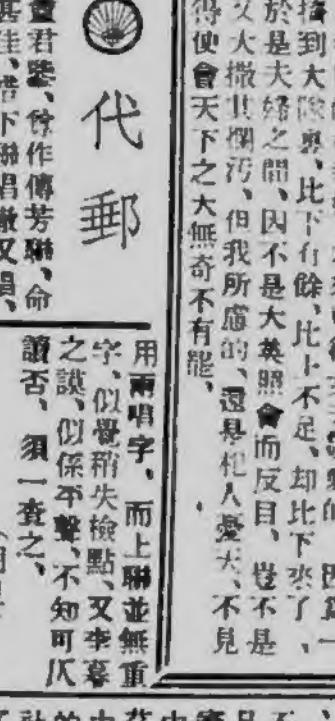 到大隊奧、比下有餘、比上不足、却比下來了、
於是夫婦之間、因不是大英照會而反目、豈不是
大撒其爛污、但我所慮的、還是杞人憂天、不見
得使會天下之大無奇不有罷、
代郵
君鑒、作傳芳聯、命
甚佳、惜下聯唱又唱、
用兩唱字、而上聯並無重
字、似覺稍失檢點、又李慕
之謨、似係平聲、不知可仄
讀否、須一查之、